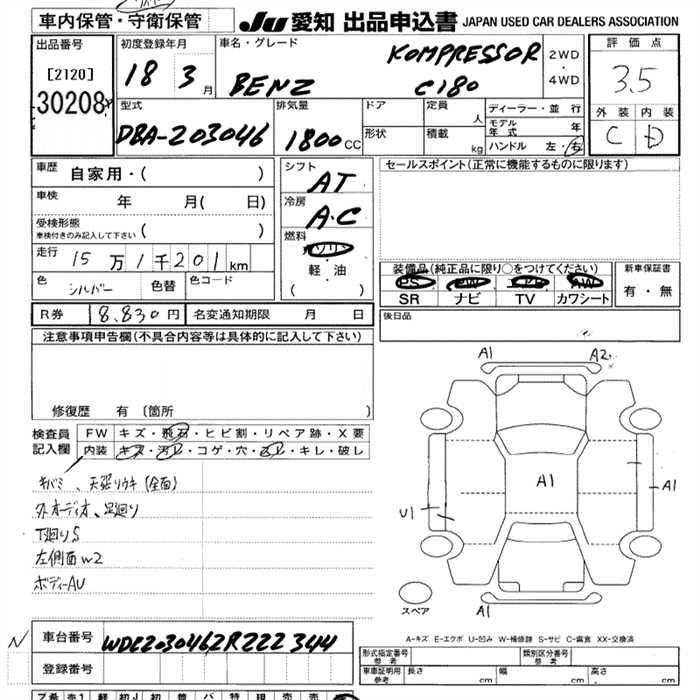 車内保管・守衛保管 JU 愛知 出品申込書 JAPAN USED CAR DEALERS ASSOCIATION
出品番号 初度登録年月 車名・グレード 評価点
[2120] 18 3月 BENZ KOMPRESSOR C180 2WD・4WD 3.5
30208
型式 排気量 ドア 定員 人 ディーラー・並行 外装 内装
DBA-203046 1800CC 形状 積載 kg モデル年式 年 C D
ハンドル 左・右
車歴 自家用・( ) シフト AT セールスポイント(正常に機能するものに限ります)
車検 年 月( 日) 冷房 A.C
受検形態 車検付きのみ記入して下さい ( ) 燃料 ガソリン
走行 15万1千201km 軽・油 装備品(純正品に限り○をつけてください) 新車保証書
色 シルバー 色替 色コード ( ) PS PW AW 有・無
SR ナビ TV カワシート
R券 8,830円 名変通知期限 月 日 後日品
注意事項申告欄(不具合内容等は具体的に記入して下さい)
修復歴 有 (箇所 )
検査員記入欄 FW キズ・飛石・ヒビ割・リペア跡・X要
内装 キズ・汚レ・コゲ・穴・スレ・キレ・破し
キバミ、天張りウキ(全面)
外オーディオ、足廻り
下廻りS
左側面W2
ボディーAU
A1 A2
A1
A1
U1
A1
スペア
A-キズ E-エクボ U-凹み W-補修跡 S-サビ C-腐食 XX-交換済
N 車台番号 WDC2030462R222344
登録番号
形式指定番号 参考 類別区分番号 参考
車庫証明用 参考 長さ 幅 高さ